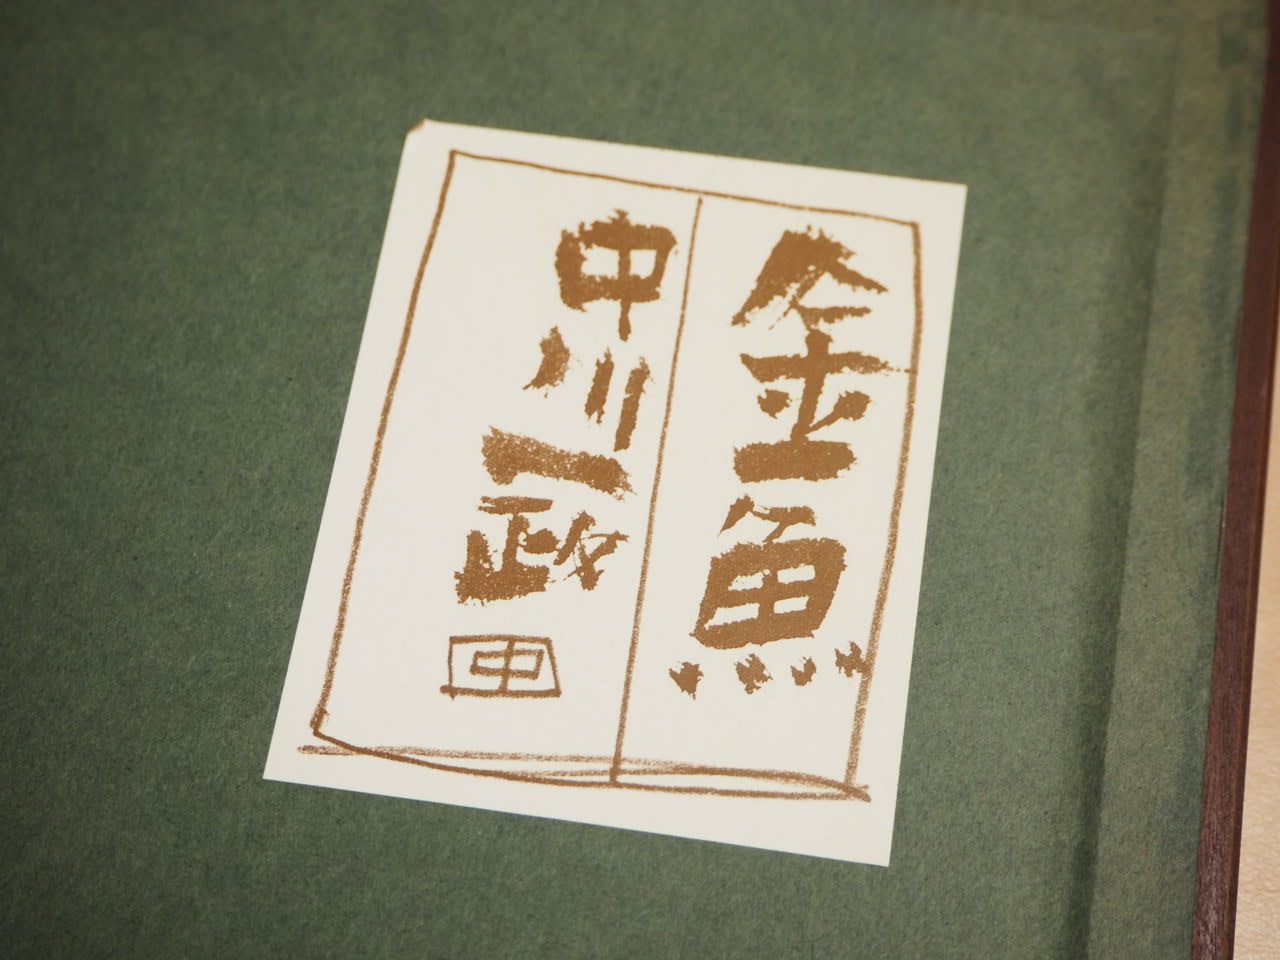 金魚
中川一政
中